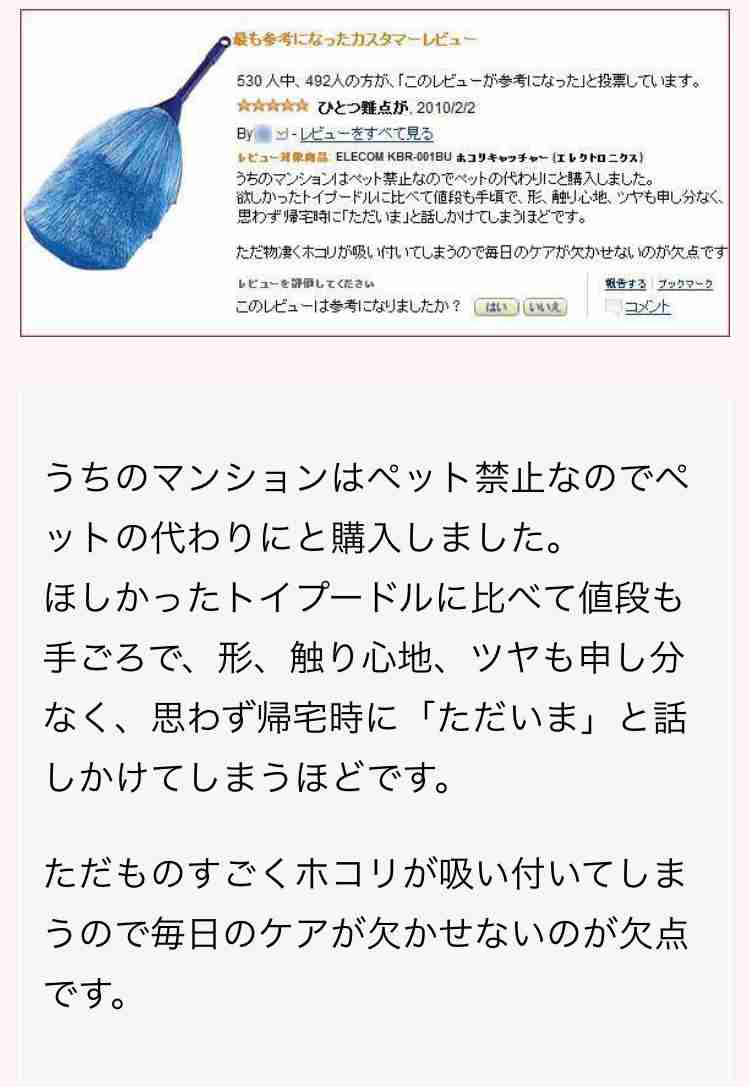 最も参考になったカスタマーレビュー
530 人中、492人の方が、「このレビューが参考になった」と投票しています。
★★★★★ ひとつ難点が, 2010/2/2
By - レビューをすべて見る
レビュー対象商品: ELECOM KBR-001BU ホコリキャッチャー (エレクトロニクス)
うちのマンションはペット禁止なのでペットの代わりにと購入しました。
欲しかったトイプードルに比べて値段も手頃で、形、触り心地、ツヤも申し分なく、
思わず帰宅時に「ただいま」と話しかけてしまうほどです。
ただ物凄くホコリが吸い付いてしまうので毎日のケアが欠かせないのが欠点です
レビューを評価してください
このレビューは参考になりましたか？ はい いいえ
報告する | ブックマーク
コメント
うちのマンションはペット禁止なのでペ
ットの代わりにと購入しました。
ほしかったトイプードルに比べて値段も
手ごろで、形、触り心地、ツヤも申し分
なく、思わず帰宅時に「ただいま」と話
しかけてしまうほどです。
ただものすごくホコリが吸い付いてしま
うので毎日のケアが欠かせないのが欠点
です。